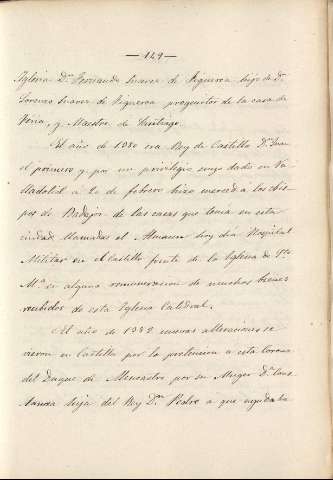 — 129 —
Iglesia Dⁿ. Fernando Suarez de Figueroa hijo de Dⁿ.
Lorenzo Suarez de Figueroa progenitor de la casa de
Feria, y Maestre de Santiago.
El año de 1380 era Rey de Castilla Dⁿ. Juan
el primero y por un privilegio suyo dado en Va
lladolid a 20 de febrero hizo merced a los obis
pos de Badajoz de las casas que tenia en esta
ciudad llamadas el Almacen hoy dia Hospital
Militar en el Castillo frente de la Iglesia de Sta.
Mª. en alguna remuneracion de muchos bienes
recibidos de esta Iglesia Catedral.
El año de 1382 nuevas alteraciones se
vieron en Castilla por la pretension a esta Corona
del Duque de Alencastro por su Muger Dª. Cons
tanza hija del Rey Dⁿ. Pedro a que ayudaba